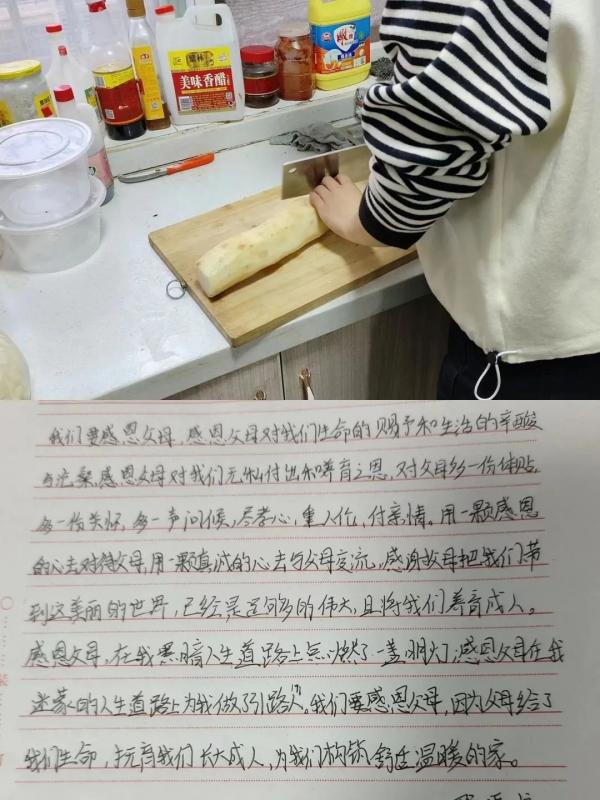 美味香醋
我们要感恩父母，感恩父母对我们生命的赐予和生活的辛酸
与沧桑，感恩父母对我们无私付出和哺育之恩，对父母多一份体贴，
多一份关怀，多一声问候，尽孝心，重人伦，付亲情。用一颗感恩
的心去对待父母，用一颗真诚的心去与父母交流，感谢父母把我们带
到这美丽的世界，已经是足够的伟大，且将我们养育成人。
感恩父母，在我黑暗人生道路上点燃了一盏明灯，感恩父母在我
迷蒙的人生道路上为我做了引路人，我们要感恩父母，因为父母给了
我们生命，抚育我们长大成人，为我们构筑舒适温暖的家。